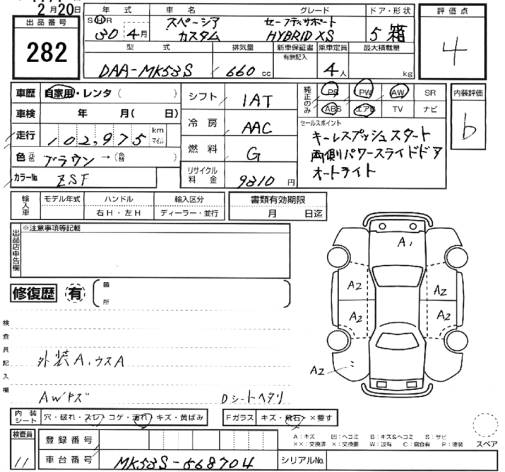 2月20日
出品番号
282
年式
車名
グレード
ドア・形状
評価点
SH 30年4月
スペーシア
カスタム
セーフティサポート
HYBRID XS
5 箱
4
型式
排気量
新車保証書
有無記入
乗車定員
最大積載量
DAA-MK53S
660 cc
4人
kg
車歴
自家用・レンタ
シフト
1AT
純正のみ
PS PW AW SR
ABS エアB TV ナビ
内装評価
b
車検
年 月 ( 日)
冷房
AAC
セールスポイント
キーレスプッシュスタート
両側パワースライドドア
オートライト
走行
102,975 km
マイル
燃料
G
色
ブラウン →
カラーNo
ZSF
リサイクル料金
9810円
輸入車
モデル年式
ハンドル
右H・左H
輸入区分
ディーラー・並行
書類有効期限
月 日迄
出品店申告欄
※注意事項等記載
修復歴
有
箇所
検査員記入欄
外装A,ウスA
AWキズ
Dシートヘタリ
A1
A2
A2
A2
A2
A2
内装シート
穴・破れ・スレ・コゲ・汚れ・キズ・黄ばみ
Fガラス
キズ・飛石・×要す
A:キズ
スペア
検査員
11
登録番号
車台番号
MK53S-568704
シリアルNo.